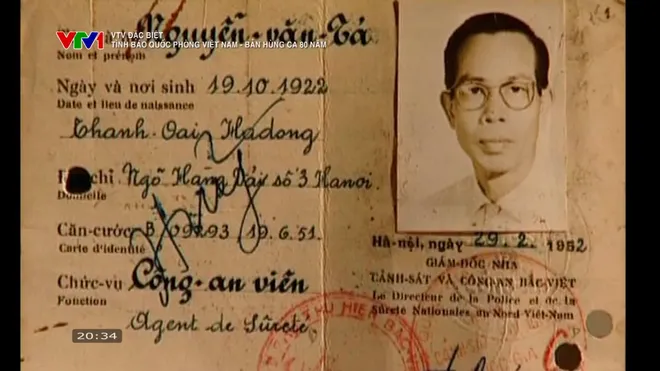 VTV1
VTV ĐẶC BIỆT
TÌNH BÁO QUỐC PHÒNG VIỆT NAM - BẢN HÙNG CA 80 NĂM
Nguyễn-văn-Tá
Nom et prénom
Ngày và nơi sinh 19.10.1922
Date et lieu de naissance
Thanh Oai Hadong
chỉ Ngõ Hàng Bảy số 3 Hanoi.
Domicile
Căn-cước B 19.6.51.
Carte d'identité
Chức-vụ Công-an viên
Function
Agent de Sûreté
Hà-nội, ngày 29.2.1952
GIÁM-ĐỐC NHA
CẢNH-SÁT VÀ CÔNG-AN BẮC-VIỆT
Le Directeur de la Police et de la
Sûreté Nationales du Nord-Việt-Nam
20:34